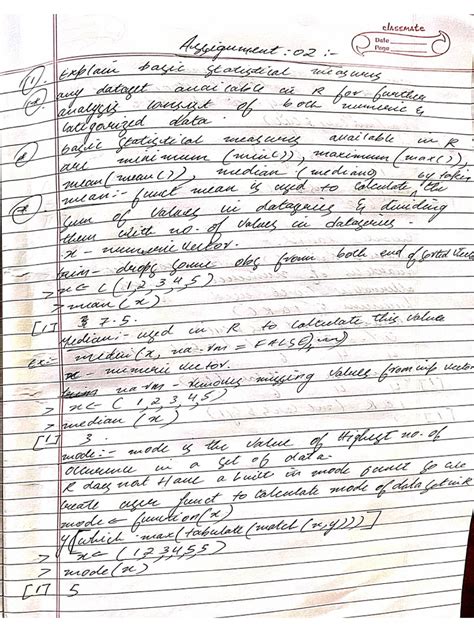 classmate
Date
Page
Assignment : 02 :-
(1). Explain basic statistical measures
any dataset available in R for further
analysis consist of both numeric &
categorized data.
basic statistical measures available in R
are minimum (min()), maximum (max()),
mean (mean()), median (median) by taken
mean :- funct mean is used to calculate the
sum of values in dataseries & dividing
them with no. of values in dataseries.
x - numeric vector.
trim - drops some obs from both end of sorted vector
> x ← c (1, 2, 3, 4, 5)
> mean (x)
[1] 7.5.
Median :- used in R to calculate this value
Ex:- median (x, na.rm = FALSE,
x - numeric vector.
na.rm - removes missing values from i/p vector
> x ← c (1, 2, 3, 4, 5)
> median (x)
[1] 3.
mode :- mode is the value of Highest no. of
occurence in a set of data.
R does not Have a built in mode funct so we
create user funct to calculate mode of data set in R
mode ← function (x)
y [which max (tabulate (match (x, y)))]
> x ← (1, 2 3 4 5 5)
> mode (x)
[1] 5